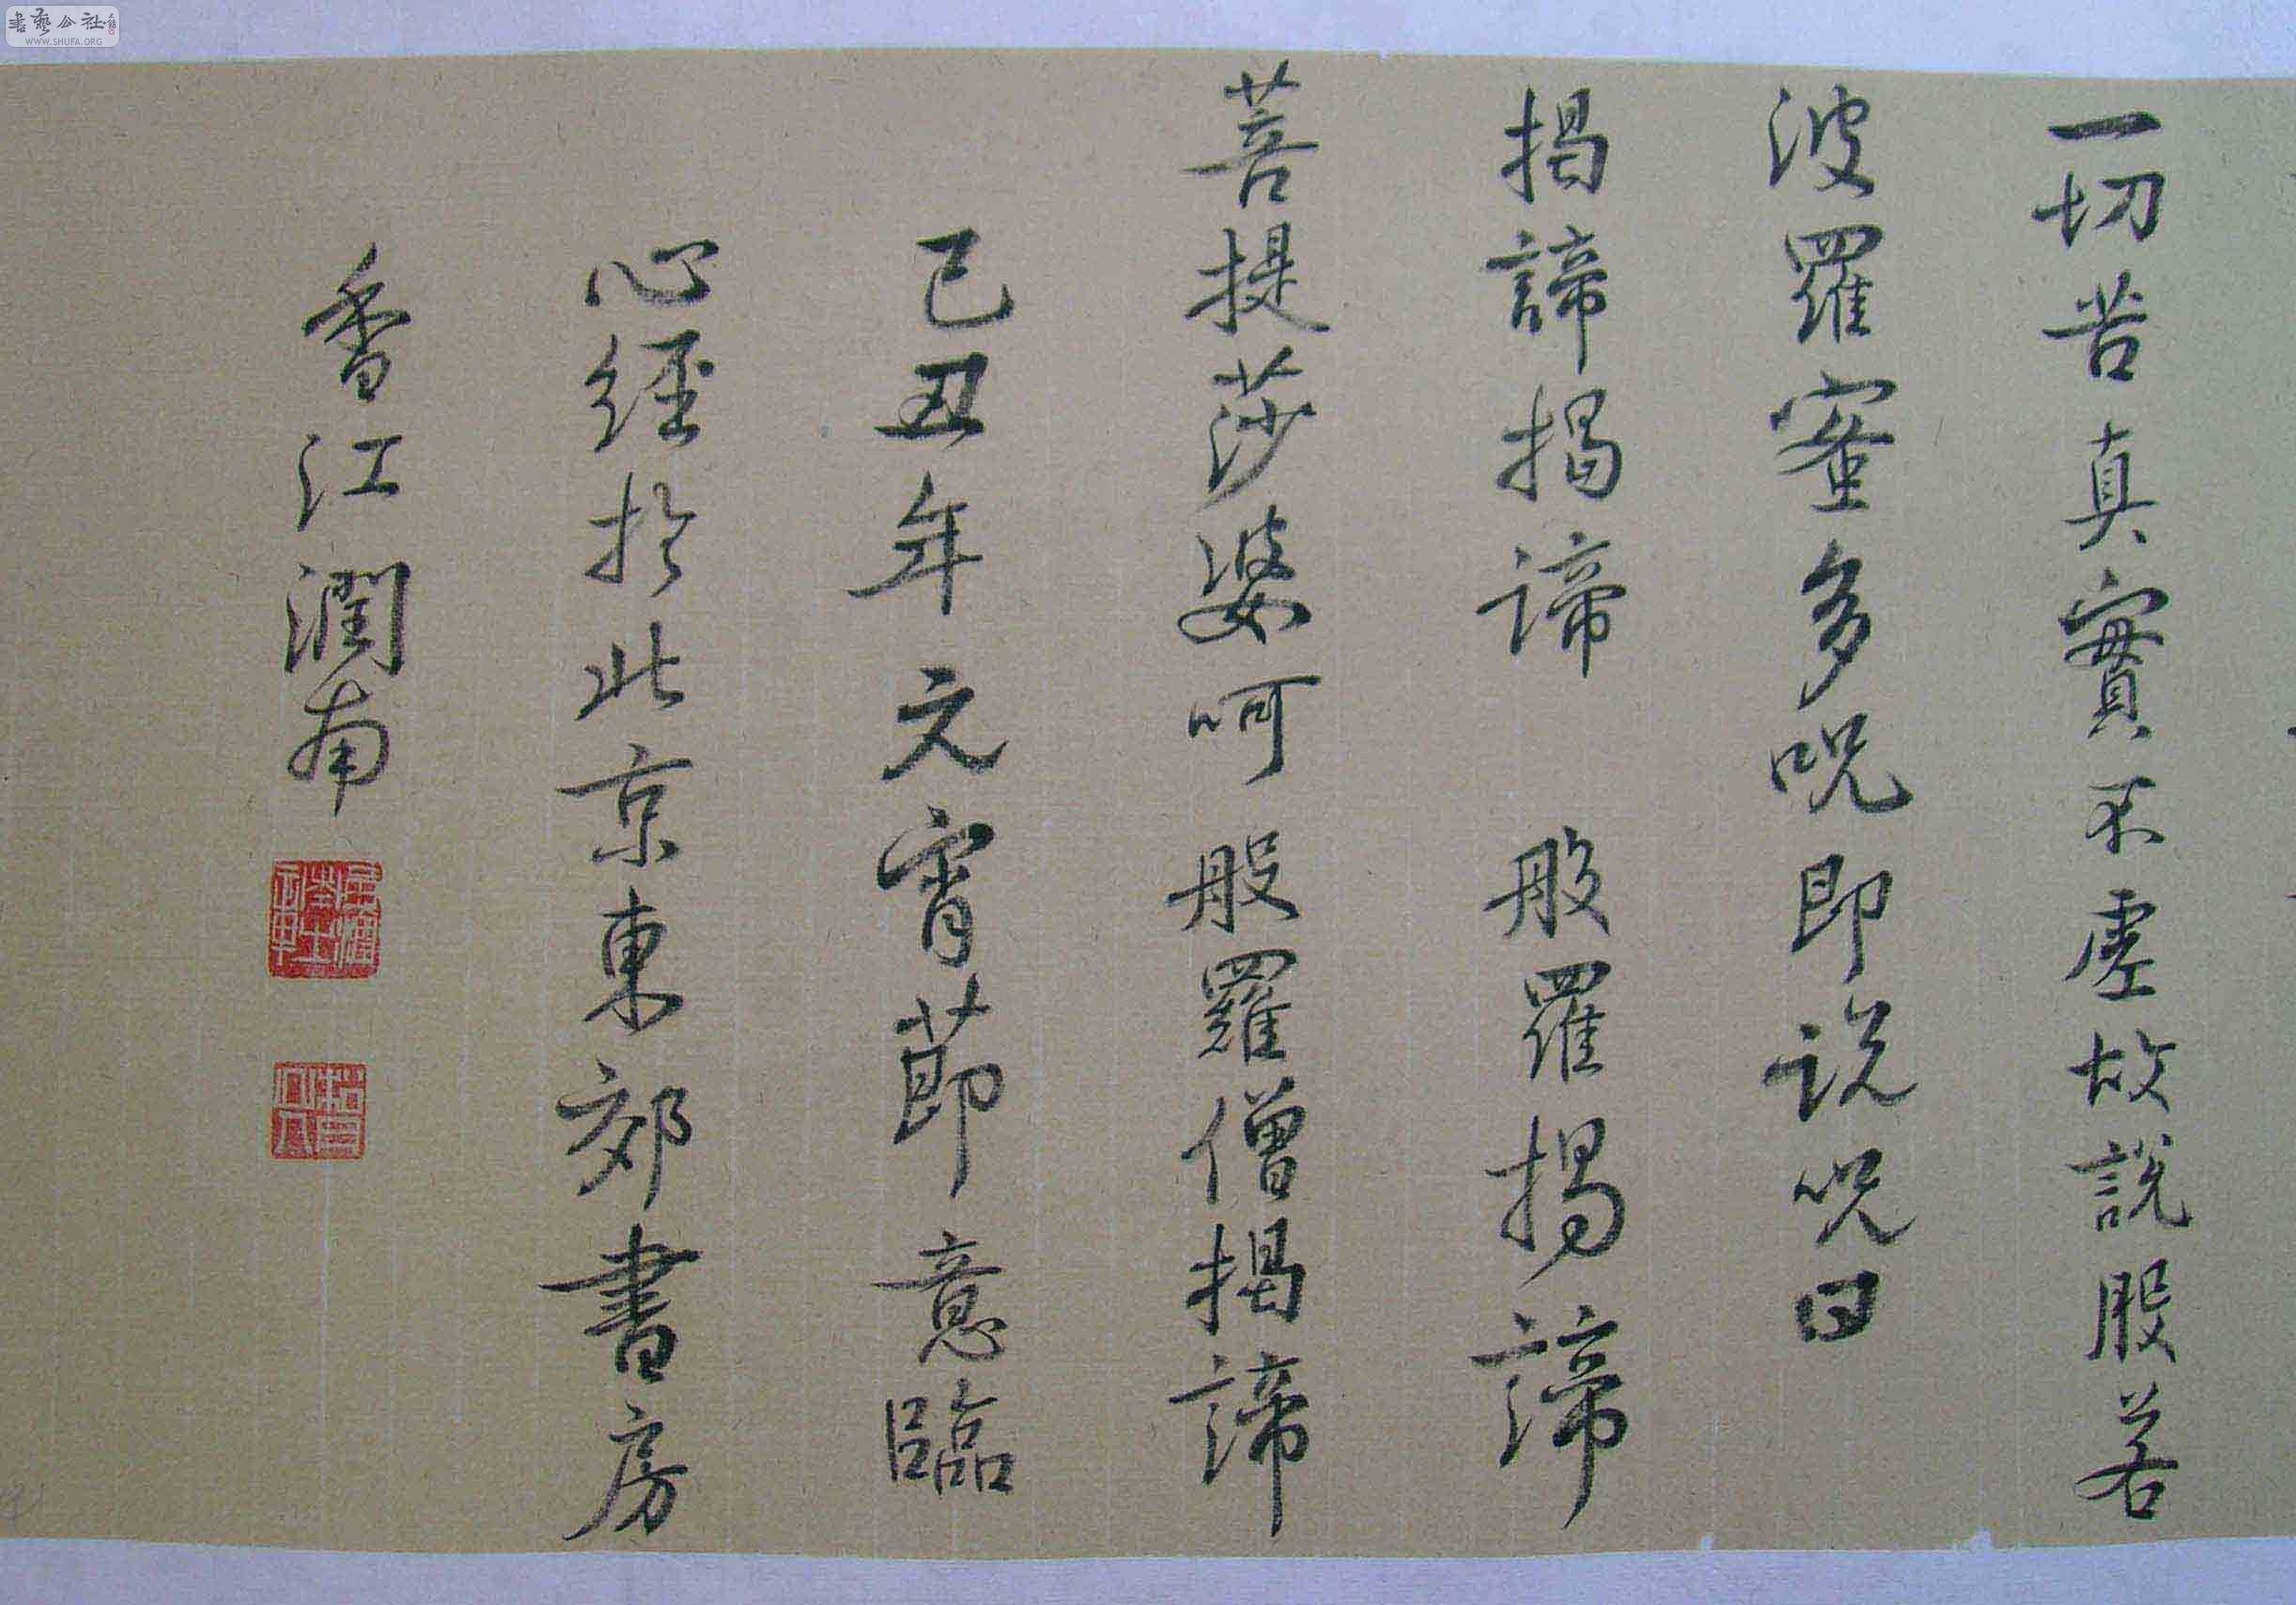 一切苦真實不虛故說般若
波羅蜜多呪即説呪曰
揭諦揭諦 般羅揭諦
菩提莎婆呵 般羅僧揭諦
己丑年元宵節意臨
心經於北京東郊書房
香江潤甫
書藝公社
WWW.SHUFA.ORG